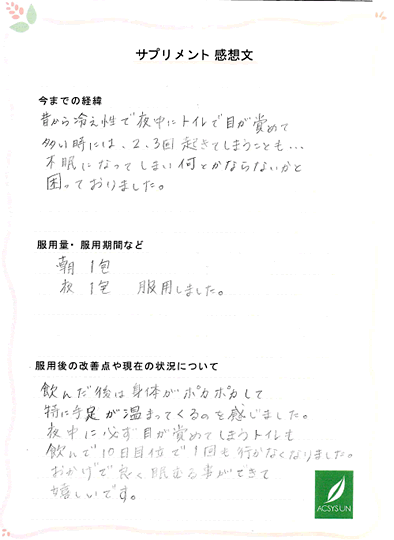 サプリメント 感想文
今までの経緯
昔から冷え性で夜中にトイレで目が覚めて
多い時には、2、3回起きてしまうことも…
不眠になってしまい何とかならないかと
困っておりました。
服用量・服用期間など
朝 1包
夜 1包 服用しました。
服用後の改善点や現在の状況について
飲んだ後は身体がポカポカして
特に手足が温まってくるのを感じました。
夜中に必ず目が覚めてしまうトイレも
飲んで10日目位で1回も行かなくなりました。
おかげで良く眠むる事ができて
嬉しいです。
ACSYSUN